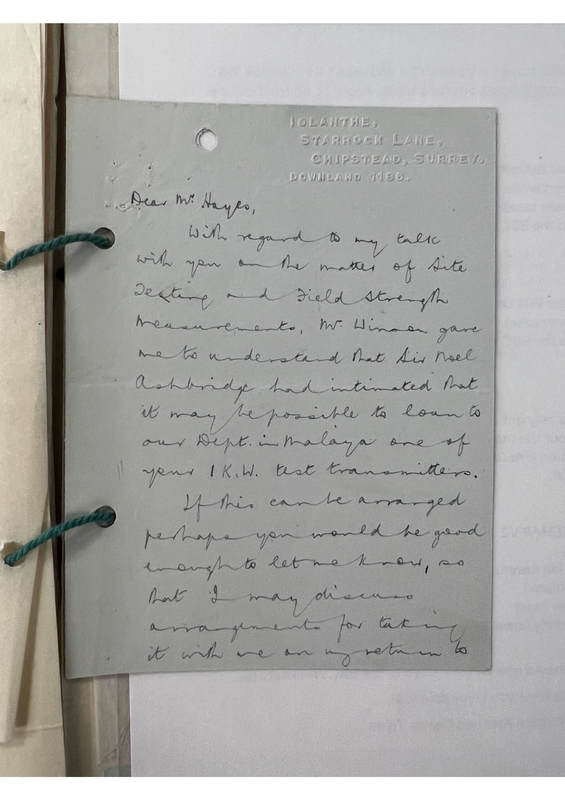 IOLANTHE,
STARROCK LANE,
CHIPSTEAD, SURREY.
DOWNLAND 1186.
Dear Mr Hayes,
With regard to my talk
with you on the matter of Site
Testing and Field Strength
Measurements, Mr. Winson gave
me to understand that Sir Noel
Ashbridge had intimated that
it may be possible to loan to
our Dept. in Malaya one of
your 1 K.W. test transmitters.
If this can be arranged
perhaps you would be good
enough to let me know, so
that I may discuss
arrangements for taking
it with me on my return to